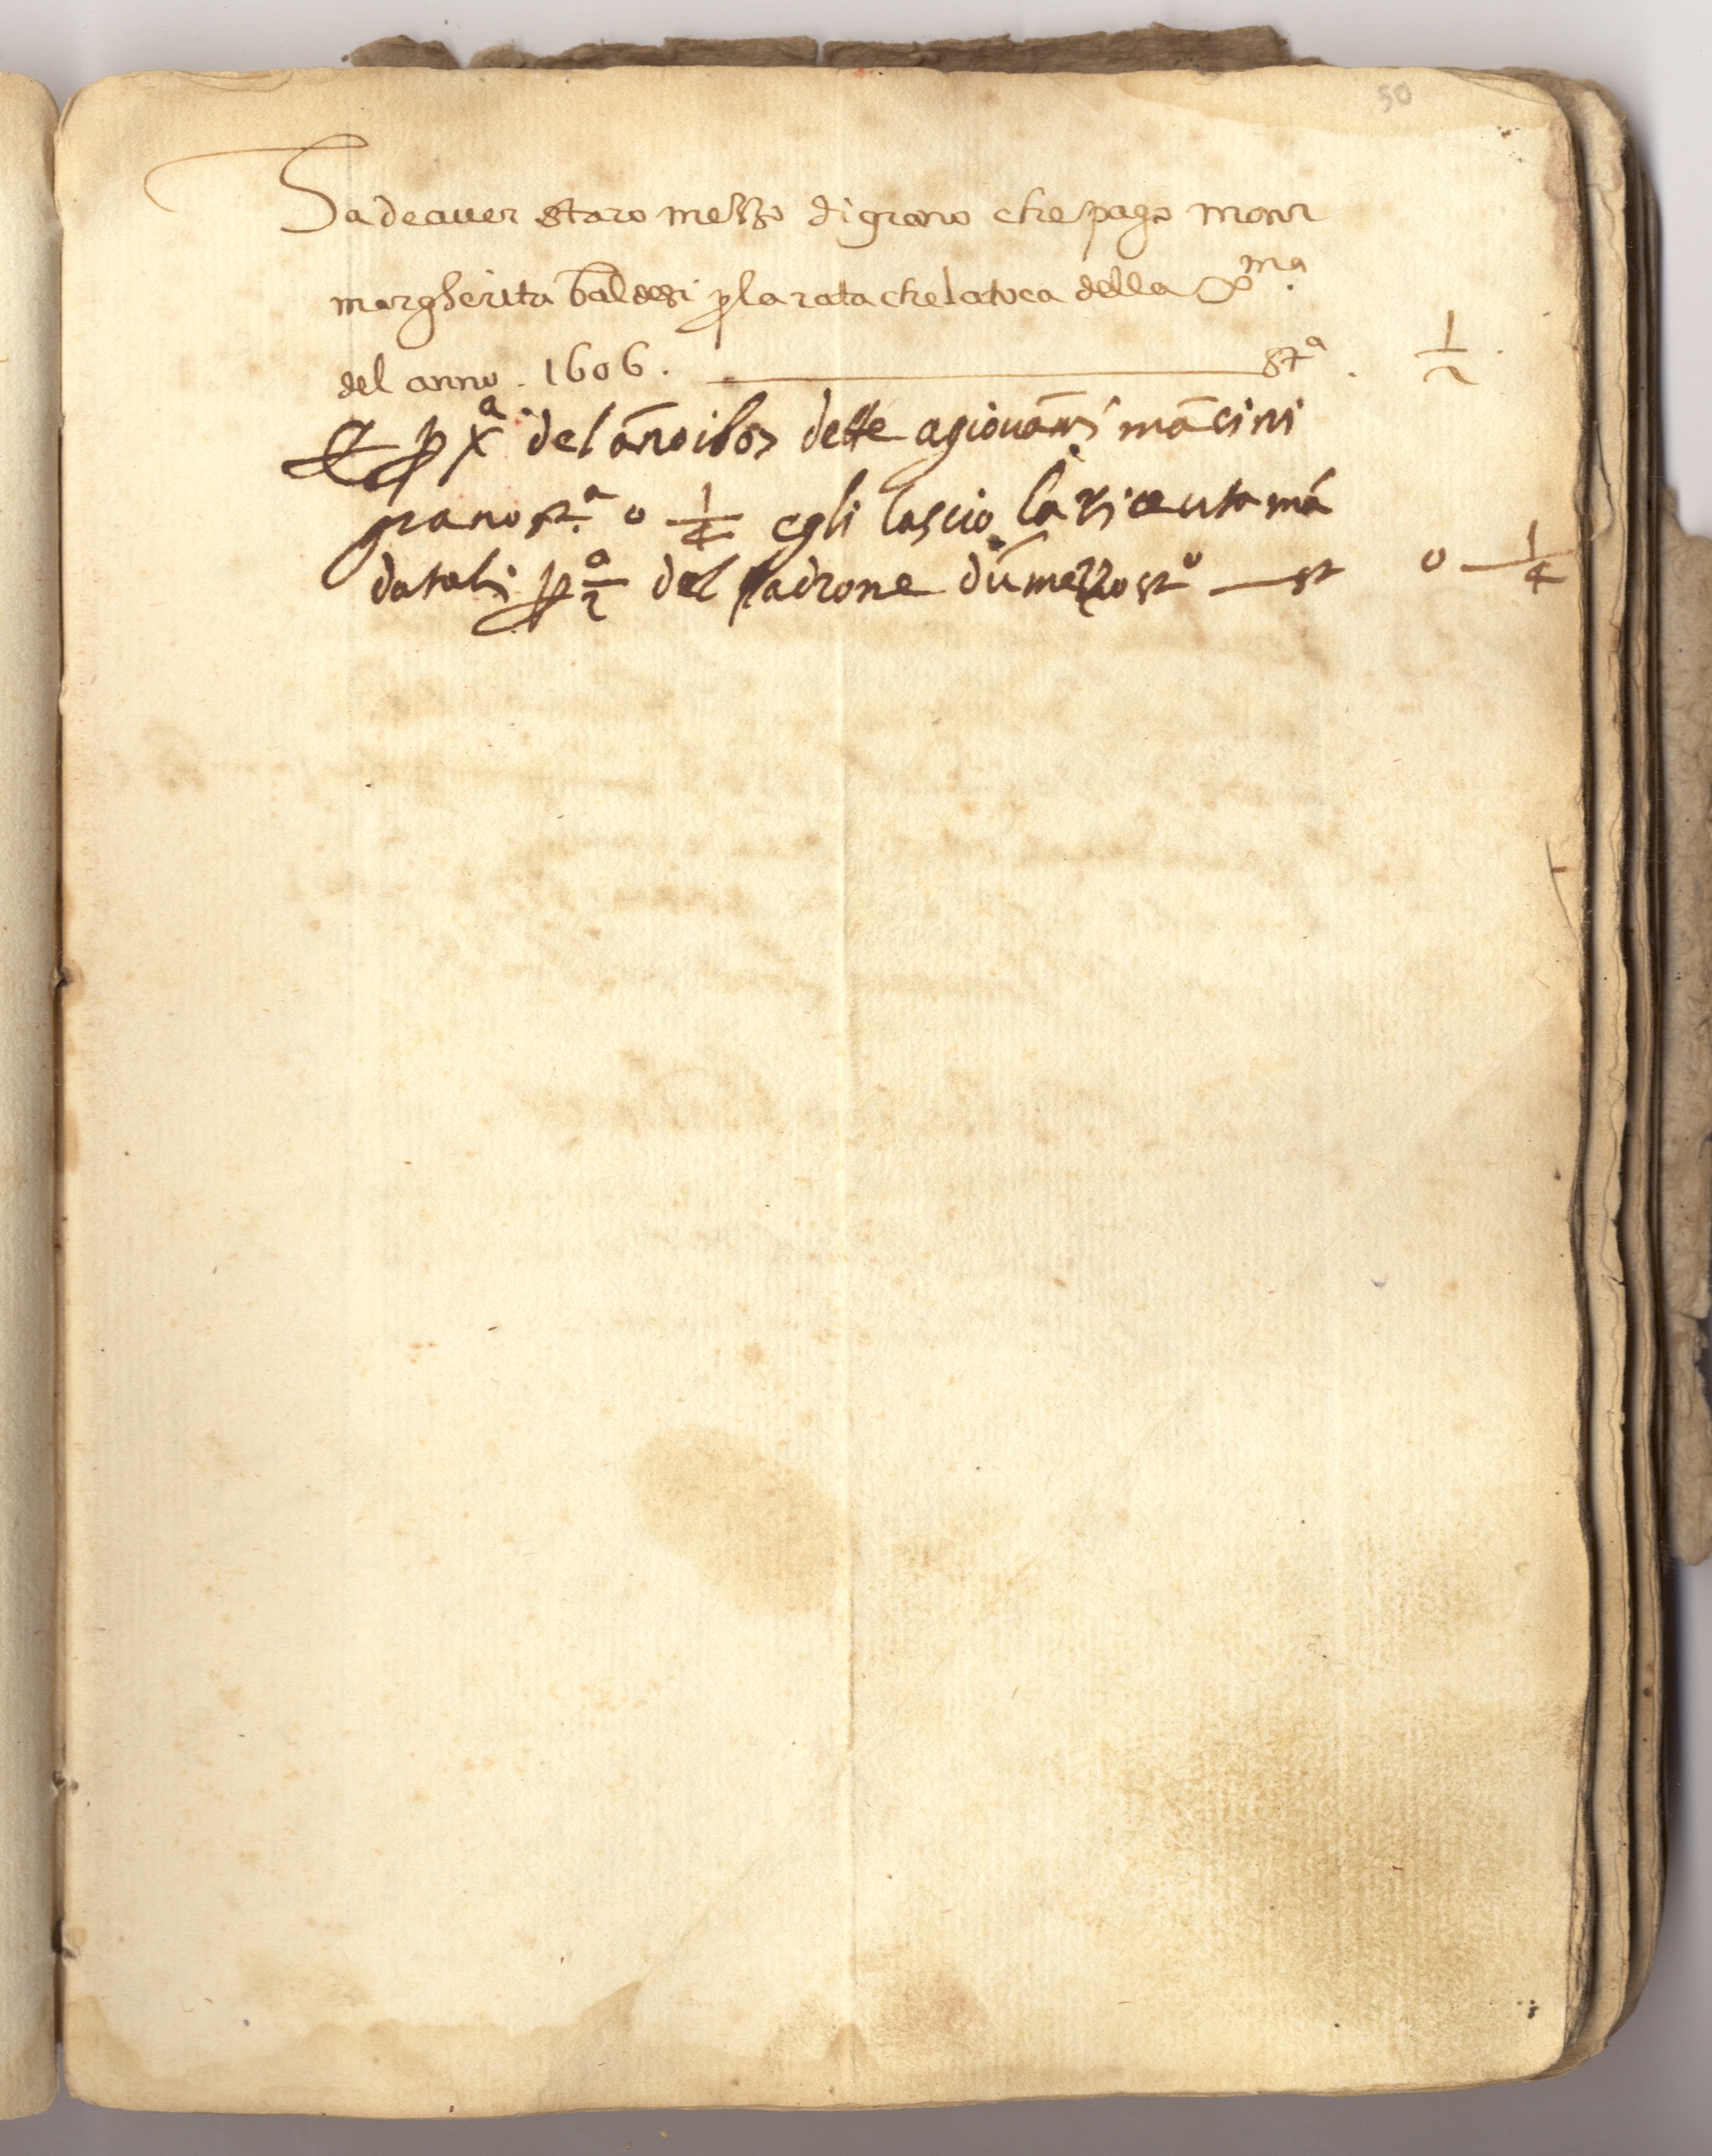 50
Sa de auer staro mezzo di grano che pago monr
margherita baldesi p la rata che la toca della Xma.
del anno . 1606 . st.a . 1/2 .
E p Xa del āno 1607 dette a giouāni mācini
grano st.a 0 1/4 e gli lascio la riceuta mā
datali p del padrone dū mezzo sto st 0 1/4